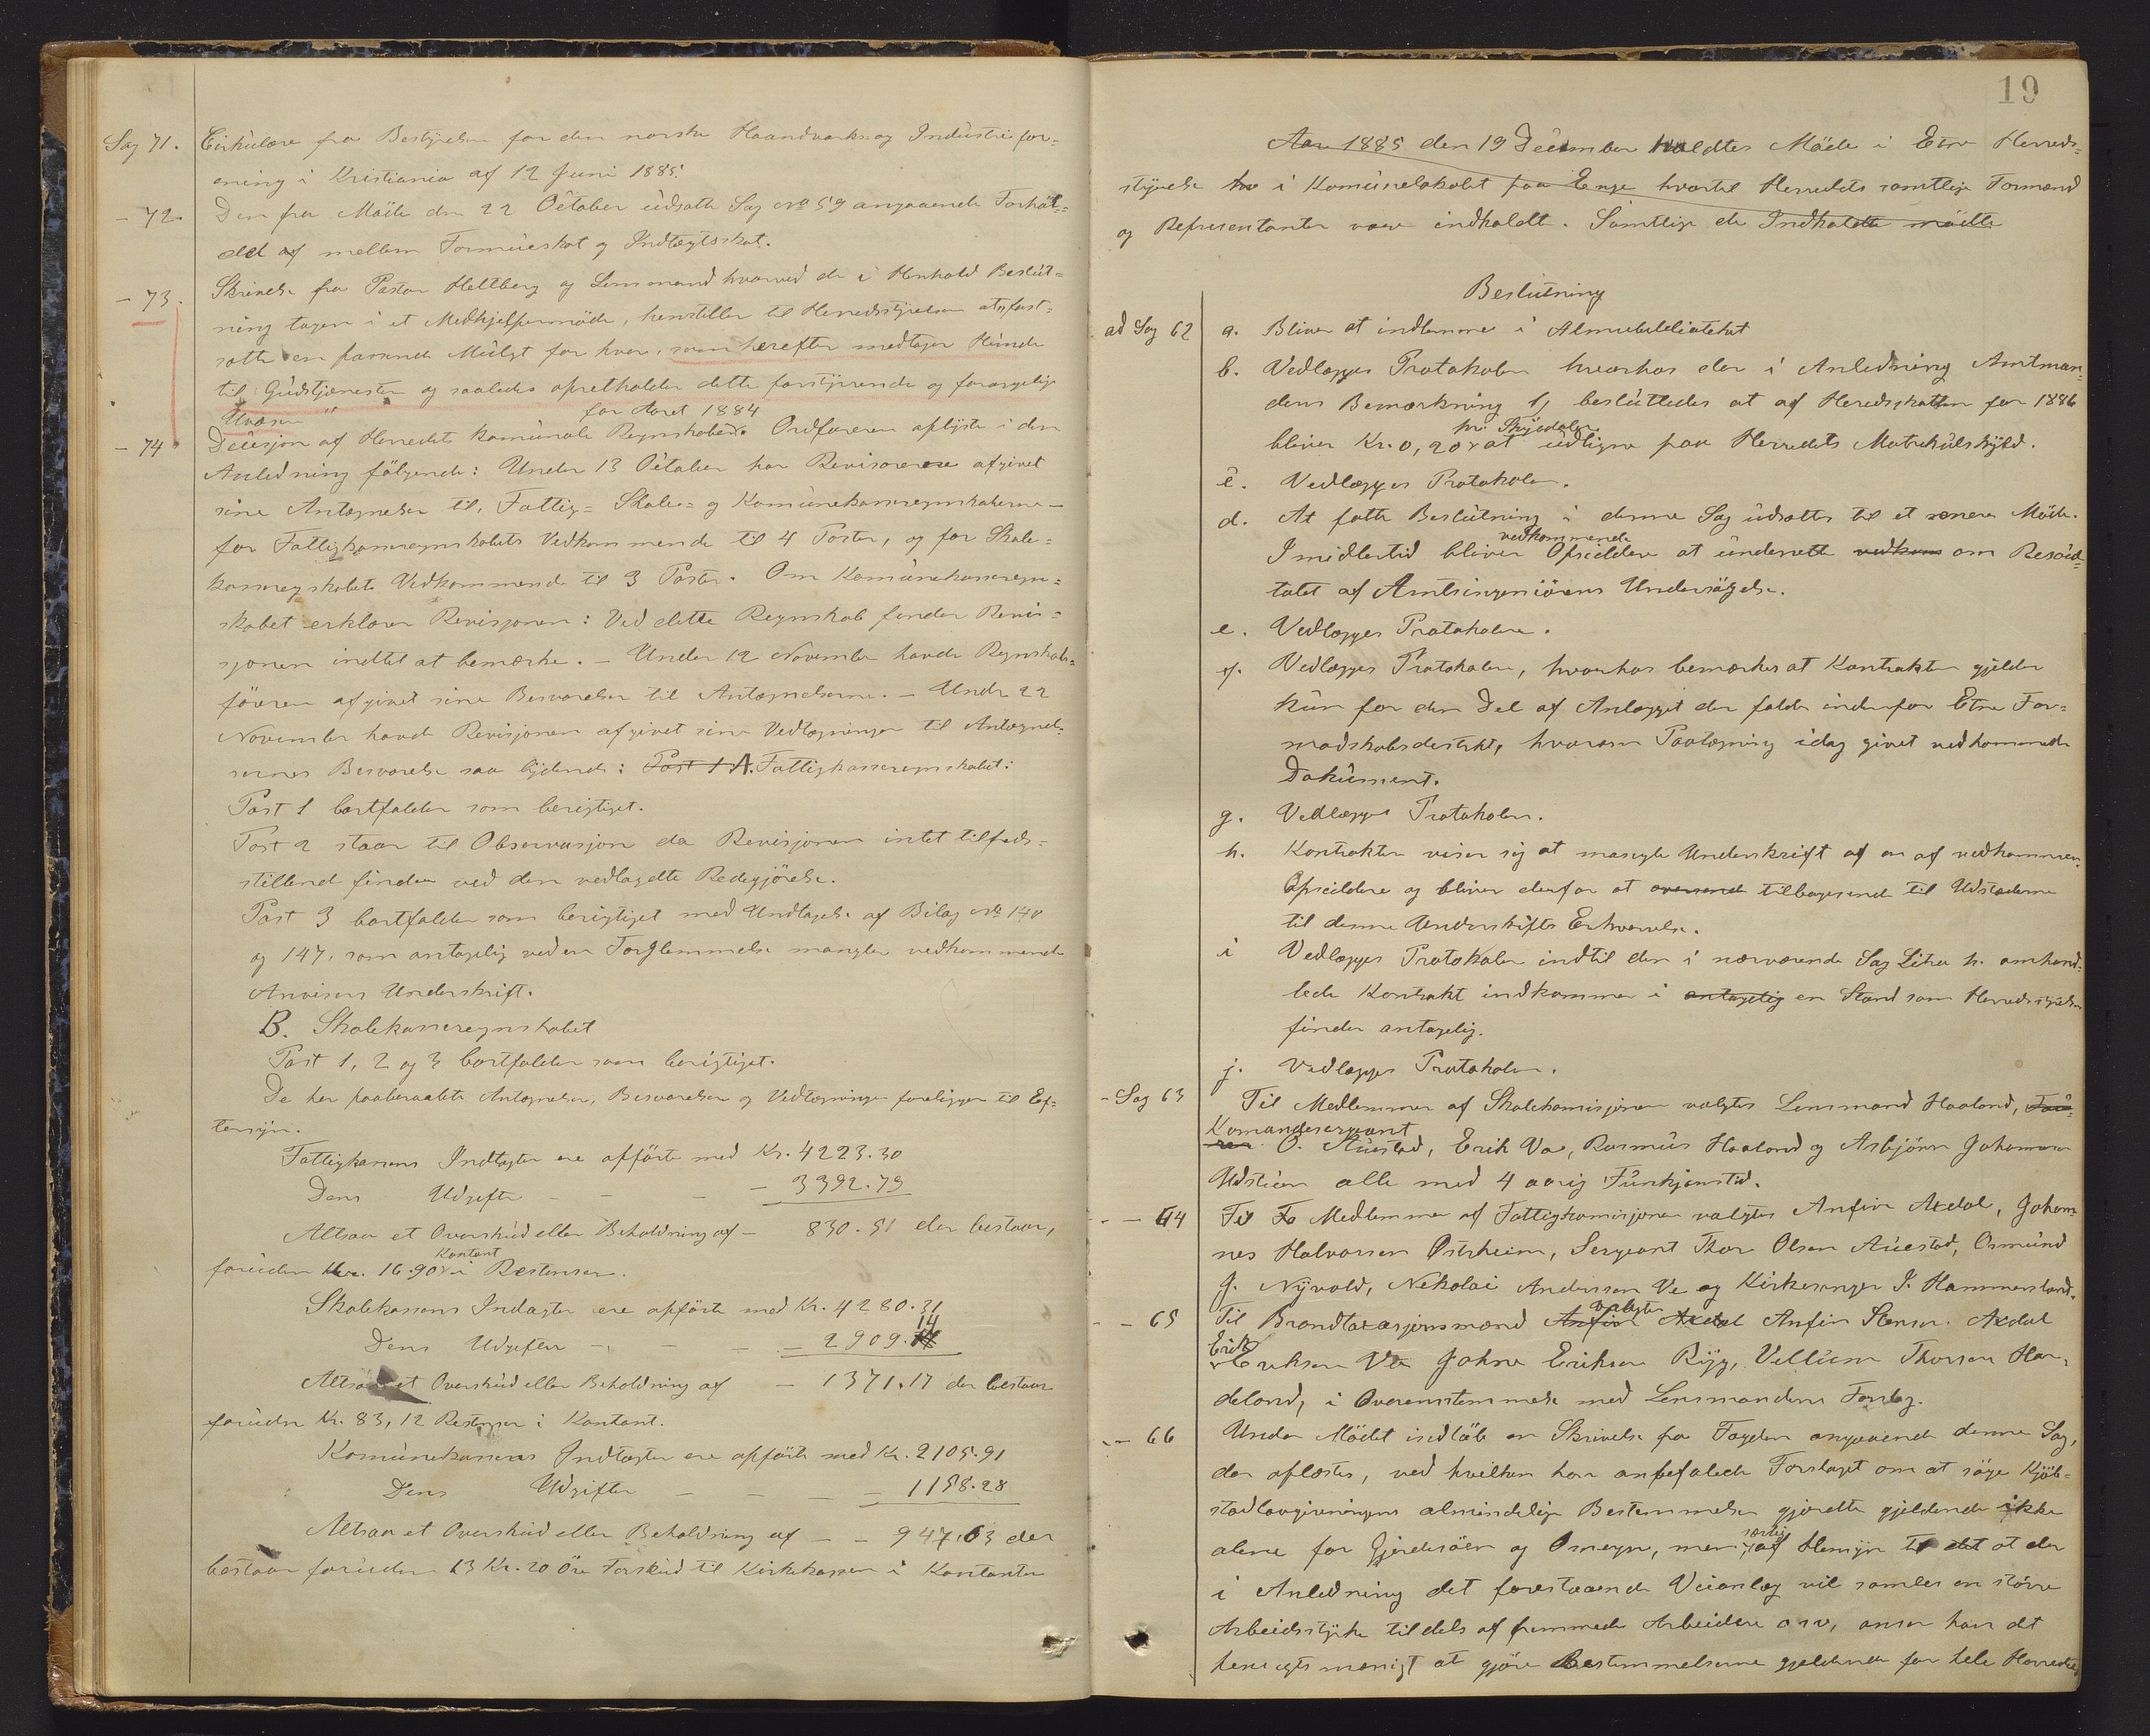 Sag 71. Cirkulære fra Bestyrelsen for den norske Haandværks og Industrifor=
ening i Kristiania af 12 Juni 1885.
- 72. Den fra Møde den 22 Oktober udsatte Sag No 59 angaaende Forhol=
det af mellem Formueskat og Indtægtsskat.
- 73. Skrivelse fra Pastor Hellberg og Lensmand hvorved de i Henhold Beslut=
ning tagen i et Medhjelpermøde, henstiller til Herredsstyrelsen at fast=
sætte en passende Mulgt for hver, som herefter medtager Hunde
til Gudstjenesten og saaledes opretholder dette forstyrrende og forargelige
Uvæsen
for Aaret 1884
- 74 Decisjon af Herredets komunale Regnskaber. Ordføreren oplyste i den
Anledning følgende: Under 13 Oktober har Revisorerne afgivet
sine Antegnelser til, Fattig= Skole= og Komunekasseregnskaberne -
for Fattigkasseregnskabets Vedkommende til 4 Poster, og for Skole=
kasseregskabets Vedkommende til 3 Poster. Om Komunekasseregn=
skabet erklærer Revisjonen: Ved dette Regnskab finder Revi=
sjonen indtet at bemærke. - Under 12 November havde Regnskabs=
føreren afgivet sine Besvarelser til Antegnelserne. - Under 22
November havde Revisjonen afgivet sine Vedtegninger til Antegnel=
sernes Besvarelse saa lydende: Post 1 A. Fattigkasseregnskabet:
Post 1 bortfalder som berigtiget.
Post 2 staar til Observasjon da Revisjonen intet tilfreds=
stillend finder ved den vedlagdte Redegjørelse.
Post 3 bortfalder som berigtiget med Undtagelse af Bilag No 140
og 147, som antagelig ved en Forglemmelse mangler vedkommende
Anvisers Underskrift.
B. Skolekasseregnskabet
Post 1, 2 og 3 bortfalder som berigtiget.
De her paaberaabte Antegnelser, Besvarelser og Vedtegninger foreligger til Ef=
tersyn.
Fattigkassens Indtægter ere opførte med Kr. 4223.30
Dens Udgifter - - - - 3392.79
Altsaa et Overskud eller Beholdning af - 830.51 der bestaar,
foruden Kr. 16.90 i Restanser. Kontant
Skolekassens Indtægter ere opførte med Kr. 4280.31
Dens Udgifter - - - - 2909.14
Altsaa et Overskud eller Beholdning af - 1371.17 der bestaar
foruden Kr. 83,12 Restanser i Kontant.
Komunekassens Indtægter ere opførte med Kr. 2105.91
Dens Udgifter - - - - 1158.28
Altsaa et Overskud eller Beholdning af - - 947.63 der
bestaar foruden 13 Kr. 20 Øre Forskud til Kirkekassen i Kontanter
19
Aar 1885 den 19 December holdtes Møde i Etne Herreds=
styrelse i Komunelokalet paa Enge hvortil Herredets samtlige Formænd
og Representanter vare indkaldt. Samtlige de Indkaldte mødte
Beslutning
ad Sag 62 a. Bliver at indlemme i Almuebibliotekat
b. Vedlægges Protokolen hvorhos der i Anledning Amtman=
dens Bemærkning 1, besluttedes at af Heredsskatten for 1886
pr. Skyldaler
bliver Kr. 0,20 at udligne paa Herredets Matrikulskyld.
c. Vedlægges Protokolen.
d. At fatte Beslutning i denne Sag udsættes til et senere Møde.
vedkommende
Imidlertid bliver Opsiddere at underrette vedkom om Resul=
tatet af Amtsingeniørens Undersøgelse.
e. Vedlægges Protokolen.
f. Vedlægges Protokolen, hvorhos bemærkes at Kontrakten gjelder
kun for den Del af Anlægget der falder indenfor Etne For=
madskabsdistrikt, hvorom Paategning idag givet vedkommende
Dokument.
g. Vedlægges Protokolen.
h. Kontrakten viser sig at mangle Underskrift af en af vedkommen.
Opsiddere og bliver derfor at oversende tilbagesend til Udstederne
til denne Underskrifts Erhværvelse.
i Vedlægges Protokolen indtil den i nærværende Sag Litra h. omhand=
lede Kontrakt indkommer i antagelig en Stand som Herredsstyrelsen
finder antagelig.
j. Vedlægges Protokolen.
- Sag 63 Til Medlemmer af Skolekomisjonen valgtes Lensmand Haaland,
Komandersergeant
O. Austad, Erik Va, Rasmus Haaland og Asbjørn Johannesen
Udstien alle med 4 aarig Funksjonstid.
- - 64 Til Medlemmer af Fattigkomisjonen valgtes Anfin Axdal, Johan=
nes Halvorsen Østrheim, Sergeant Thor Olsen Austad, Osmund
J. Nyvold, Nekolai Andersen Ve og Kirkesanger I. Hammersland.
- - 65 Til Brandtaxasjonsmænd valgtes Anfin Axdal Anfin Stensen Axdal
Erik
Eriksen Va Johne Eriksen Ryg, Vellum Thorsen Har=
deland, i Overensstemmelse med Lensmandens Forslag.
- - 66 Under Mødet indløb en Skrivelse fra Fogden angaaende denne Sag,
der oplæstes, ved hvilken han anbefalede Forslaget om at søge Kjøb=
stadlovgivningens almindelige Bestemmelser gjordte gjeldende ikke
alene for Gjerdesøen og Osneyre, men særlig af Hensyn til det at der
i Anledning det forestaaende Veianlæg vil samles en større
Arbeidsstyrke tildels af fremmede Arbeidere osv, anser han det
hensigtsmæsigt at gjøre Bestemmelserne gjeldende for hele Herredet